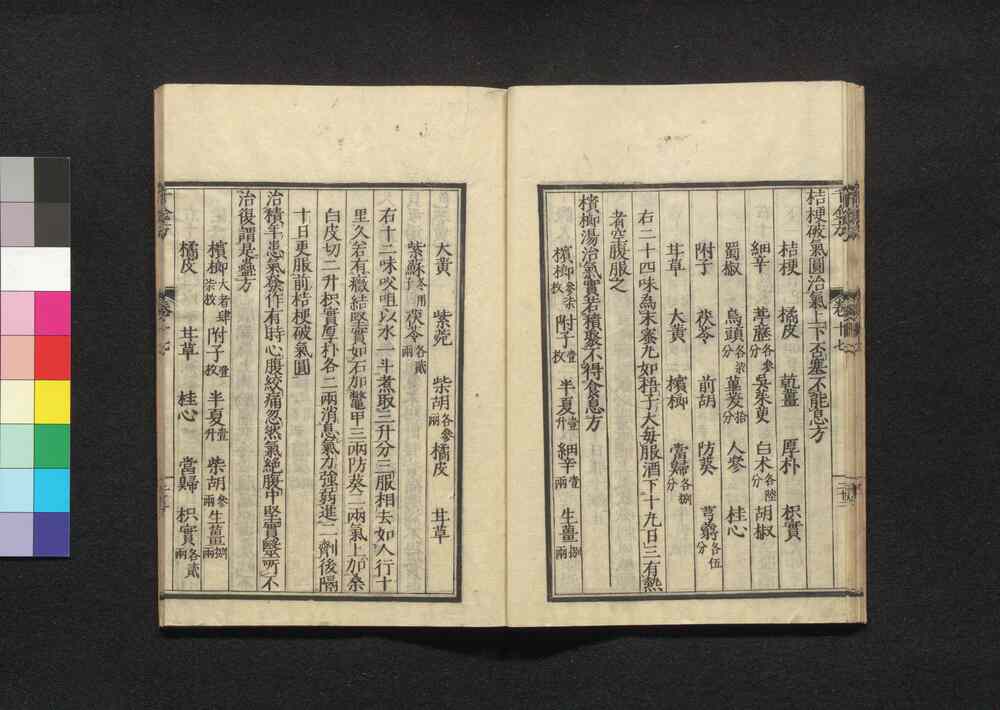 桔梗破氣圓治氣上下否塞不能息方
桔梗 橘皮 乾薑 厚朴 枳實
細辛 葶藶各參分 吳茱萸 白朮各陸分 胡椒
蜀椒 烏頭各柒分 蓽茇拾分 人參 桂心
附子 茯苓 前胡 防葵 芎藭各伍分
甘草 大黃 檳榔 當歸各捌分
右二十四味爲末蜜丸如梧子大每服酒下十九日三有熱
者空腹服之
檳榔湯治氣實若積聚不得食息方
檳榔參柒枚 附子壹枚 半夏壹升 細辛壹兩 生薑捌兩
大黃 紫菀 柴胡各參兩 橘皮 甘草
紫蘇子冬用 茯苓各貳兩
右十二味㕮咀以水一斗煮取三升分三服相去如人行十
里久若有癥結堅實如石加鼈甲三兩防葵二兩氣上加桑
白皮切二升枳實厚朴各二兩消息氣力強弱進二劑後隔
十日更服前桔梗破氣圓
治積年患氣發作有時心腹絞痛忽然氣絕腹中堅實醫所不
治復謂是蠱方
檳榔大者肆柒枚 附子壹枚 半夏壹升 柴胡參兩 生薑捌兩
橘皮 甘草 桂心 當歸 枳實各貳兩